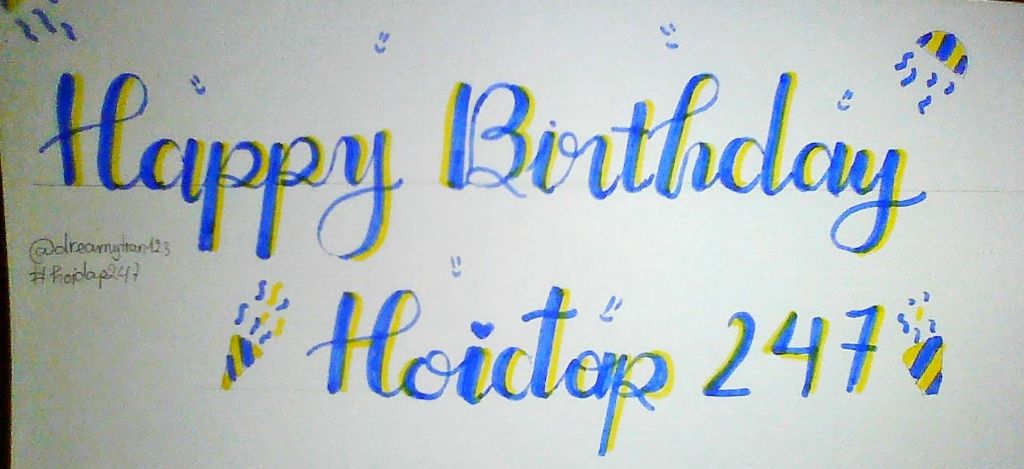 Happy Birthday
@dreamytran123
#hoidap247
Hoidap 247